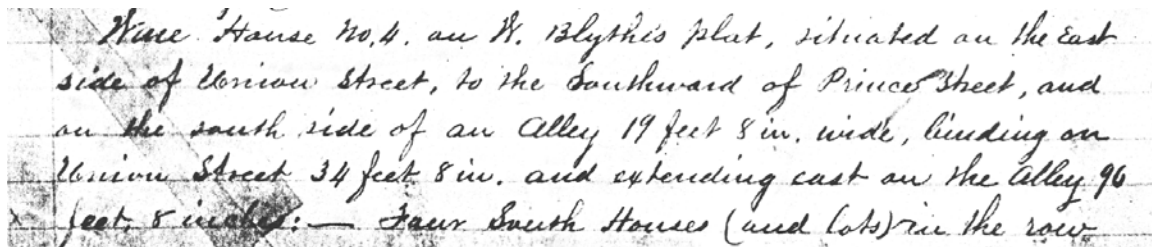 Ware House No. 4. on W. Blythe's plat, situated on the East
side of Union Street, to the Southward of Prince Street, and
on the south side of an Alley 19 feet 8 in. wide, binding on
Union Street 34 feet 8 in. and extending east on the Alley 96
feet, 8 inches: — Four South Houses (and lots) in the row